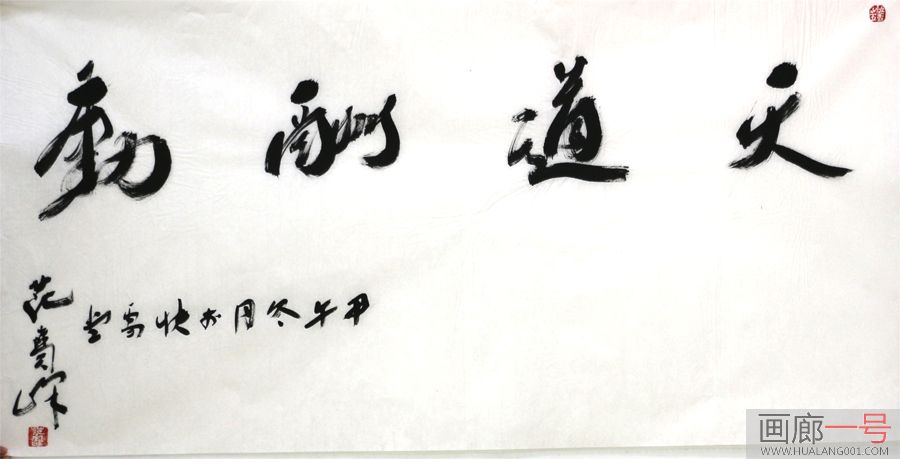 天道酬勤
甲午冬月於快雪堂
范
画廊一号
WWW.HUALANG001.COM